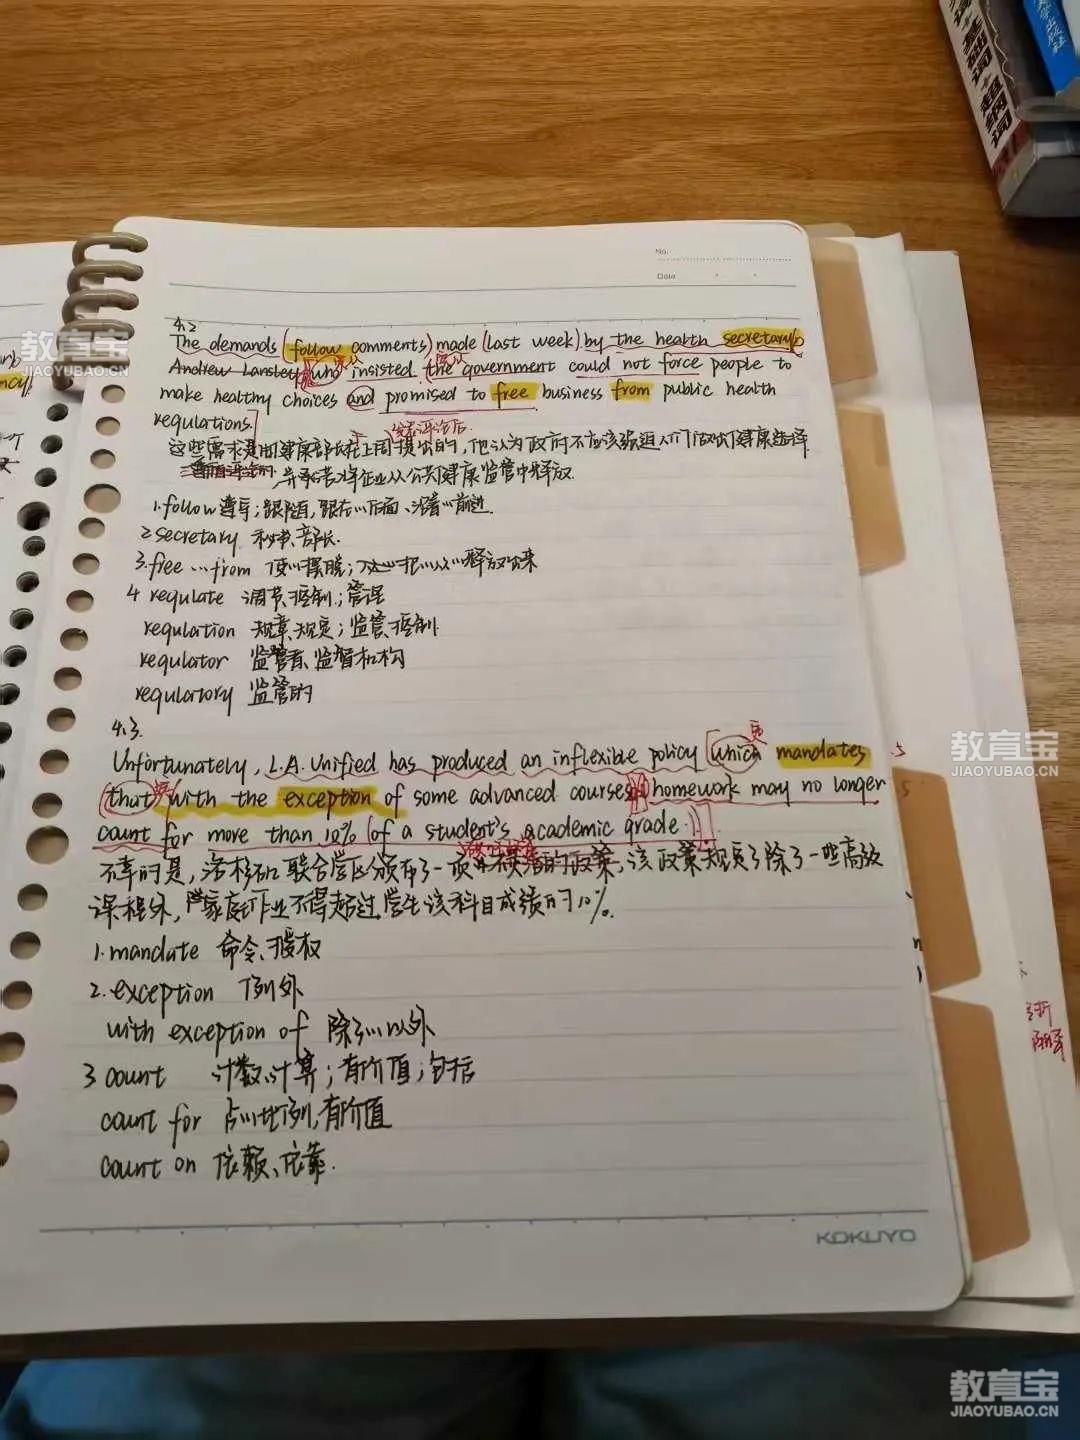 基础词+超纲词
No.
Date
4.2
The demands (follow comments) made (last week) by the health secretary
Andrew Lansley who insisted the government could not force people to
make healthy choices and promised to free business from public health
regulations.
发表评论后
这些需求是由健康部长在上周提出的,他认为政府不应该强迫人们做出健康选择
,并承诺将企业从公共健康监管中释放.
1.follow 遵守;跟随,跟在…后面、沿着…前进.
2 secretary 秘书、部长.
3.free … from 使…摆脱;把…从…释放出来
4 regulate 调节、控制;管理
regulation 规章、规定;监管、控制
regulator 监管者、监管机构
regulatory 监管的
4.3.
Unfortunately, L.A. Unified has produced an inflexible policy which mandates
that with the exception of some advanced courses homework may no longer
count for more than 10% (of a student's academic grade.)
不幸的是,洛杉矶联合学区颁布了一项不灵活的政策,该政策规定了除了一些高级
课程外,家庭作业不得超过学生该科目成绩的10%.
1. mandate 命令、授权
2. exception 例外
with exception of 除了…以外
3 count 计数、计算;有价值;包括
count for 占…比例,有价值
count on 依赖、依靠.
KOKUYO
教育宝
JIAOYUBAO.CN
教育宝
JIAOYUBAO.CN
教育宝
JIAOYUBAO.CN